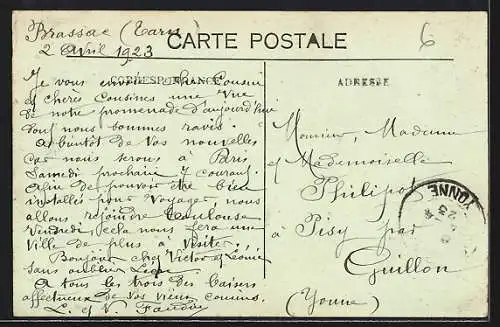 Brassac (Tarn)
2 Avril 1923
CARTE POSTALE
6
CORRESPONDANCE
ADRESSE
Je vous envoie cher Cousin
et chères Cousines une vue
de notre promenade d'aujourd'hui
dont nous sommes ravis.
A bientôt de vos nouvelles
car nous serons à Paris
Samedi prochain 7 courant.
Afin de pouvoir être bien
installés pour voyager, nous
allons rejoindre Toulouse
Vendredi, cela nous fera une
Ville de plus à visiter.
Bonjour chez Victor et Léonie
sans oublier
A tous les trois des baisers
affectueux de vos vieux cousins.
L. et V.
Monsieur, Madame
et Mademoiselle
Philipot
à Pisy par
Guillon
(Yonne)
YONNE